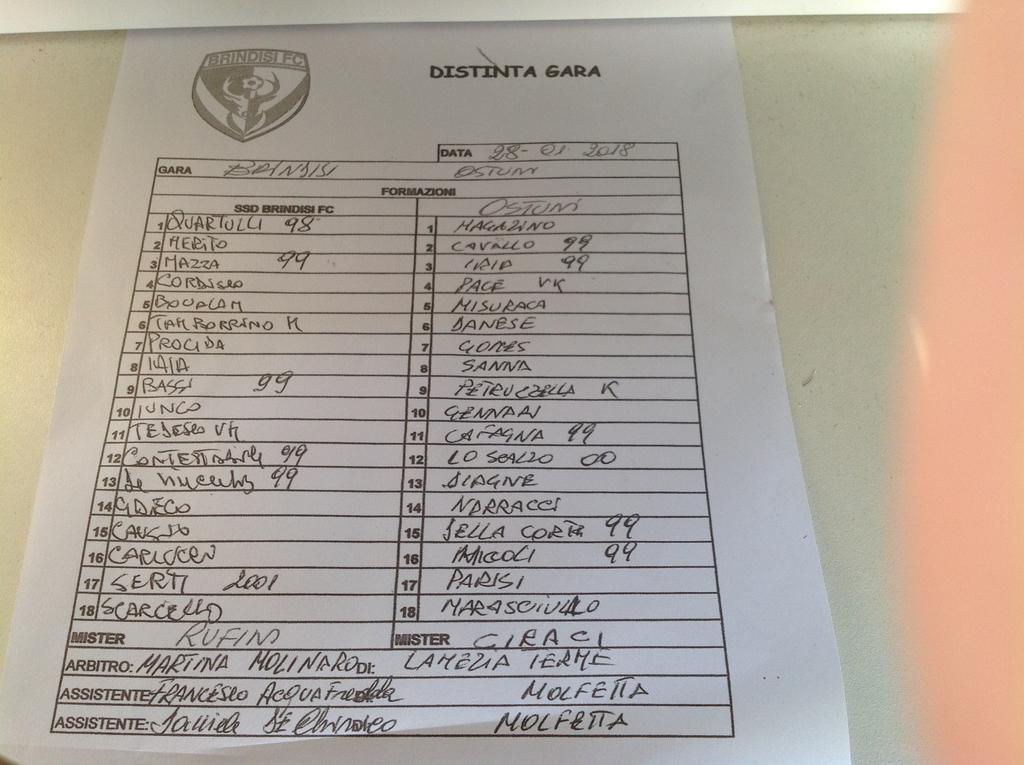 BRINDISI FC
DISTINTA GARA
DATA 28-01-2018
GARA BRINDISI OSTUNI
FORMAZIONI
SSD BRINDISI FC OSTUNI
1 QUARTULLI 98 1 MAGAZINO
2 MERITO 2 CAVALLO 99
3 MAZZA 99 3 IAIA 99
4 CORDISCO 4 PACE VK
5 BOUALAM 5 MISURACA
6 TAMBORRINO K 6 DANESE
7 PROCIDA 7 GOMES
8 IAIA 8 SANNA
9 BASSI 99 9 PETRUZZELLA K
10 IUNCO 10 GENNARI
11 TEDESCO VK 11 CAFAGNA 99
12 99 12 LO SCALZO 00
13 De 99 13 DIAGNE
14 GRECO 14 NARRACCI
15 15 DELLA CORTE 99
16 CARLUCCI 16 MICCOLI 99
17 SERTI 2001 17 PARISI
18 SCARCELLO 18 MARASCIULLO
MISTER RUFINI MISTER CIRACI
ARBITRO: MARTINA MOLINARO DI: LAMEZIA TERME
ASSISTENTE: FRANCESCO ACQUAFREDDA MOLFETTA
ASSISTENTE: Daniele DE MOLFETTA